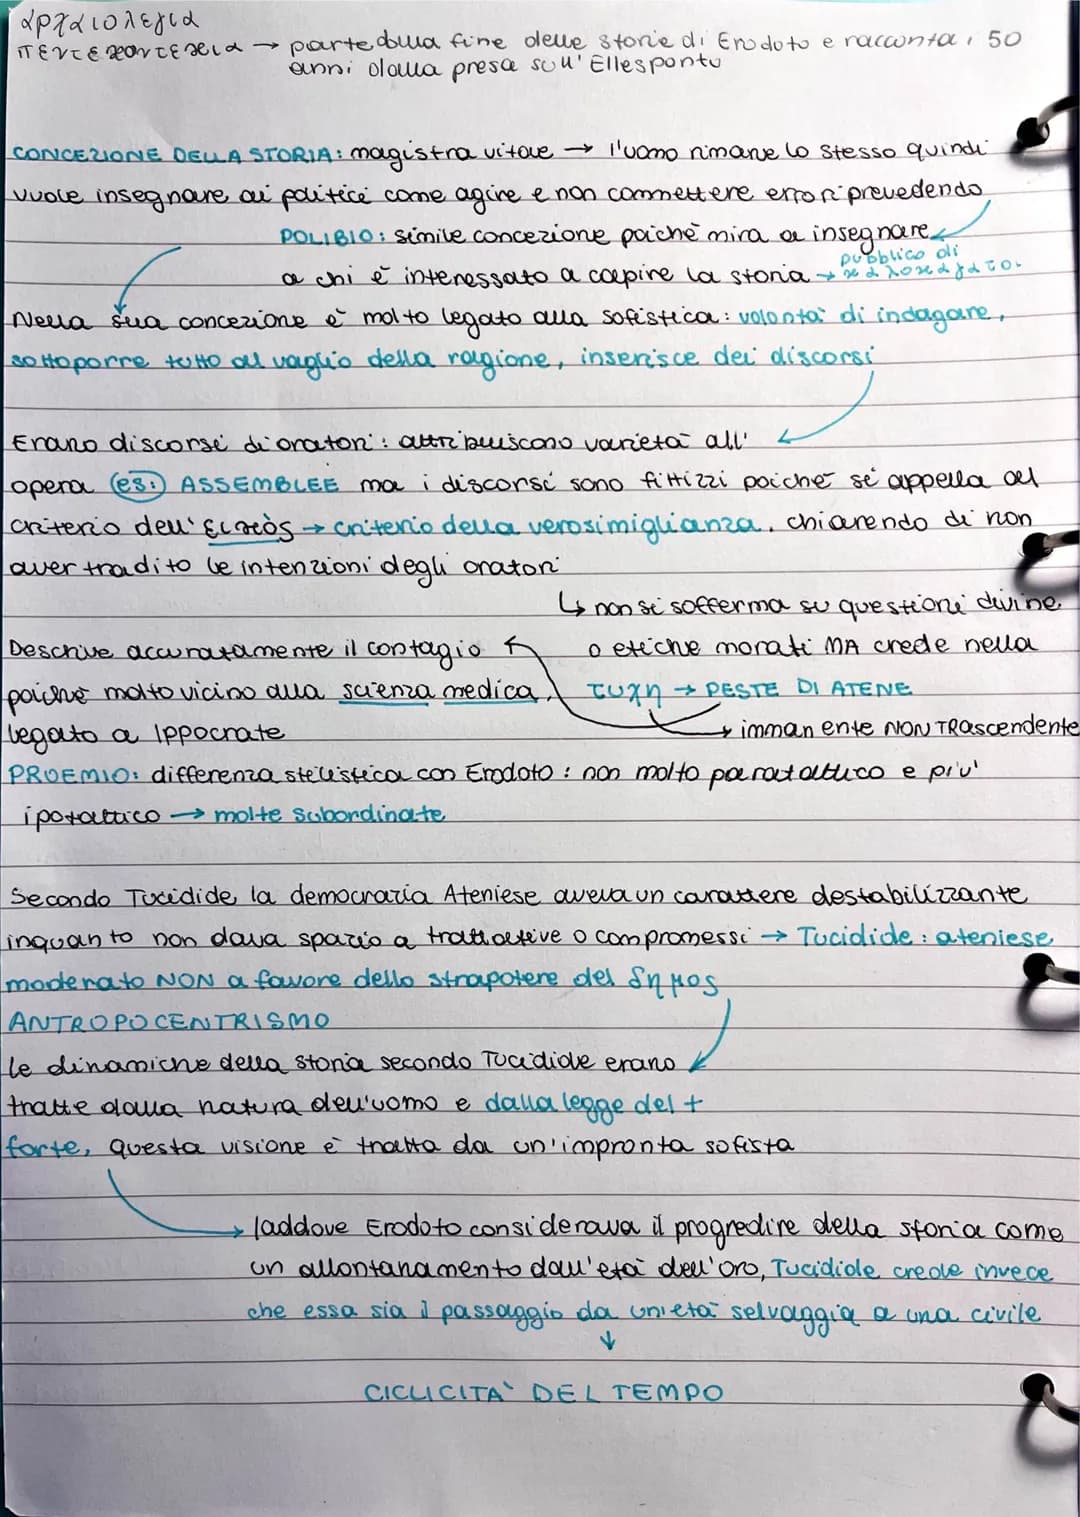 αρχαιολεγια
πεντεκοντεκεια → parte dalla fine delle storie di Erodoto e racconta i 50
anni dalla presa sull'Ellesponto
CONCEZIONE DELLA STORIA: magistra vitae → l'uomo rimane lo stesso quindi
vuole insegnare ai politici come agire e non commettere errori prevedendo
POLIBIO: simile concezione poichè mira a insegnare
a chi è interessato a capire la storia → pubblico di
καλοκαγατοι
Nella sua concezione è molto legato alla sofistica: volontà di indagare,
sottoporre tutto al vaglio della ragione, inserisce dei discorsi
Erano discorsi di oratori: attribuiscono varietà all'
opera (es:) ASSEMBLEE ma i discorsi sono fittizzi poichè si appella al
criterio dell'εικὸς → criterio della verosimiglianza, chiarendo di non
aver tradito le intenzioni degli oratori
↳ non si sofferma su questioni divine
Descrive accuratamente il contagio o etiche morati MA crede nella
poichè molto vicino alla scienza medica, τυχη → PESTE DI ATENE
legato a Ippocrate → immanente NON TRAscendente
PROEMIO: differenza stilistica con Erodoto: non molto paratattico e piu'
ipotattico → molte subordinate
Secondo Tucidide, la democrazia Ateniese aveva un carattere destabilizzante
inquanto non dava spazio a trattative o compromessi → Tucidide: ateniese
moderato NON a favore dello strapotere del δημος
ANTROPOCENTRISMO
le dinamiche della storia secondo Tucidide erano
tratte dalla natura dell'uomo e dalla legge del +
forte, questa visione è tratta da un'impronta sofista
→ laddove Erodoto considerava il progredire della storia come
un allontanamento dall'età dell'oro, Tucidide crede invece
che essa sia il passaggio da un'età selvaggia a una civile
↓
CICLICITA' DEL TEMPO